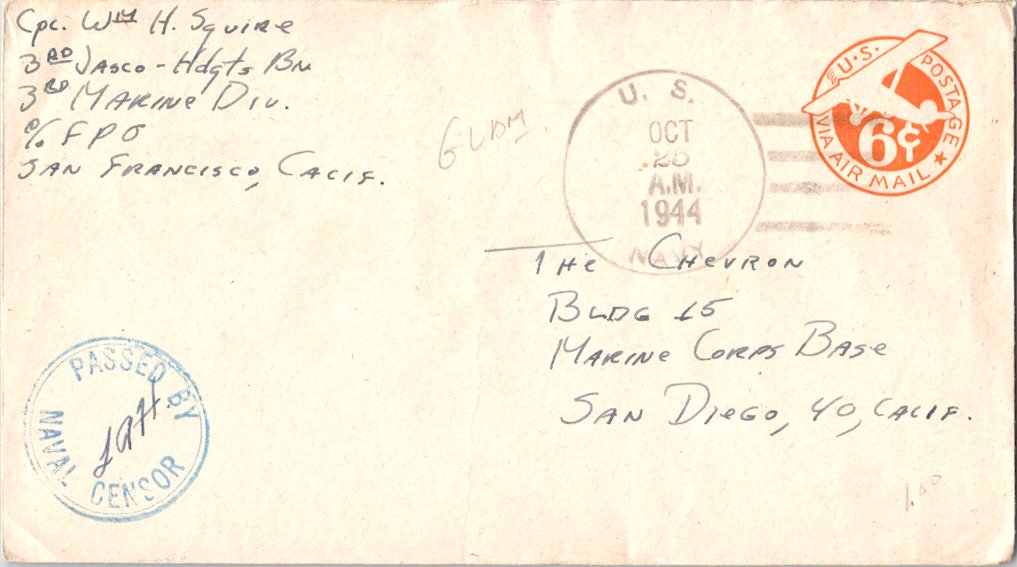 Cpl. Wm H. Squire
3RD Jasco - Hdqts Bn
3RD Marine Div.
c/o F P O
San Francisco, Calif.
U. S.
OCT
25
A.M.
1944
NAVY
U.S. POSTAGE
6¢
VIA AIR MAIL
The Chevron
Bldg 15
Marine Corps Base
San Diego, 40, Calif.
PASSED BY
NAVAL CENSOR
1.00